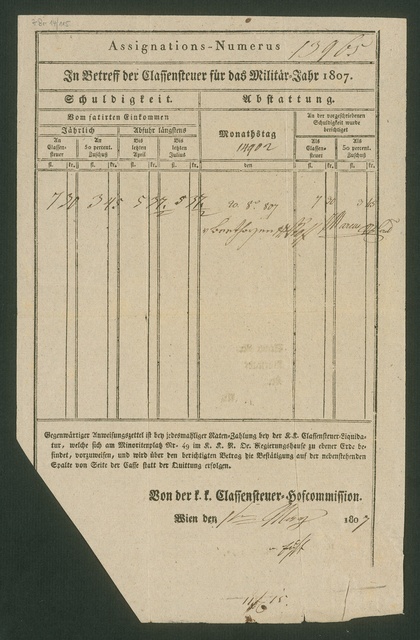 Assignations-Numerus 13965
In Betreff der Classensteuer für das Militär-Jahr 1807.
Schuldigkeit. Abstattung.
Vom fatirten Einkommen
Jährlich Abfuhr längstens
An Classensteuer
An 50 percent. Zuschuß
Bis letzten April
Bis letzten Julius
Monathstag
An der vorgeschriebenen Schuldigkeit wurde berichtiget
Als Classensteuer
Als 50 percent. Zuschuß
fl. kr. fl. kr. fl. kr. fl. kr. den fl. kr. fl. kr.
7 30 3 45 5 37 807 7 30 3 45
Gegenwärtiger Anweisungszettel ist bey jedesmahliger Raten-Zahlung bey der K.K. Classensteuer-Liquida-
tur, welche sich am Minoritenplatz Nr. 49 im K. K. N. Oe. Regierungshause zu ebener Erde be-
findet, vorzuweisen, und wird über den berichtigten Betrag die Bestätigung auf der nebenstehenden
Spalte von Seite der Casse statt der Quittung erfolgen.
Von der k. k. Classensteuer-Hofcommission.
Wien den März 1807